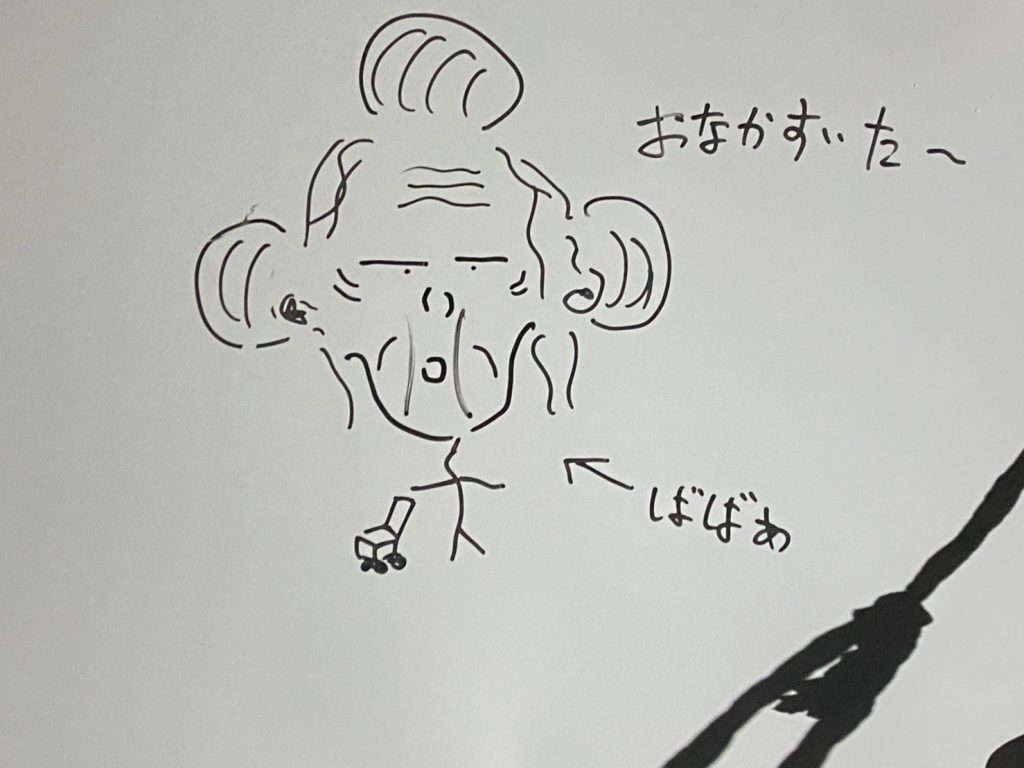 おなかすいた〜
ばばあ